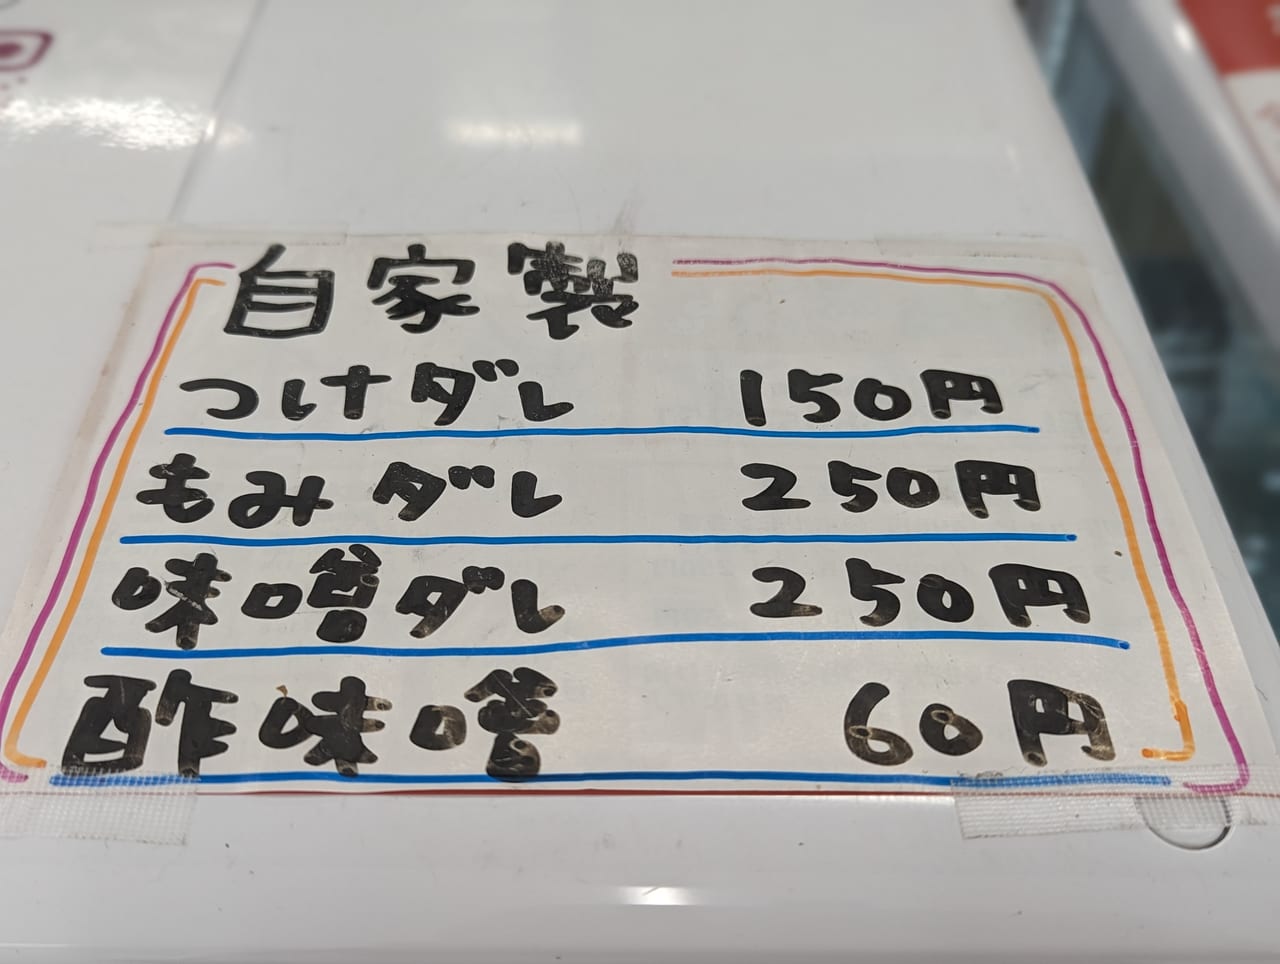 自家製
つけダレ 150円
もみダレ 250円
味噌ダレ 250円
酢味噌 60円